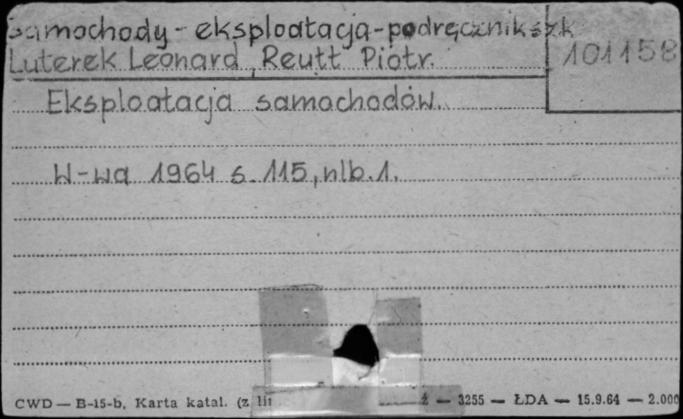 Samochody - eksploatacja - podręcznik szk
Luterek Leonard, Reutt Piotr.
101158
Eksploatacja samochodów.
W-wa 1964 s. 115, nlb. 1.
CWD — B-15-b, Karta katal. (z li
ź — 3255 — ŁDA — 15.9.64 — 2.000